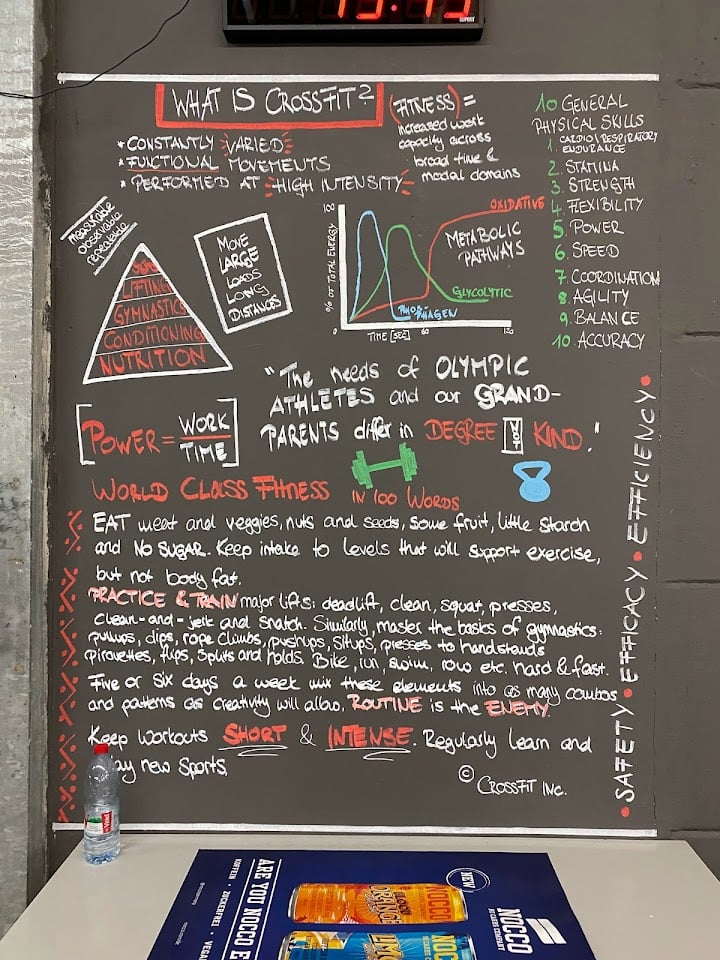 WHAT IS CROSSFIT?
*CONSTANTLY VARIED
*FUNCTIONAL MOVEMENTS
*PERFORMED AT HIGH INTENSITY
(FITNESS) =
increased work
capacity across
broad time &
modal domains
10 GENERAL
PHYSICAL SKILLS
1. CARDIO/RESPIRATORY
ENDURANCE
2. STAMINA
3. STRENGTH
4. FLEXIBILITY
5. POWER
6. SPEED
7. COORDINATION
8. AGILITY
9. BALANCE
10. ACCURACY
measurable
observable
repeatable
LIFTING
GYMNASTICS
CONDITIONING
NUTRITION
MOVE
LARGE
LOADS
LONG
DISTANCES
100
% OF TOTAL ENERGY
OXIDATIVE
METABOLIC
PATHWAYS
GLYCOLYTIC
PHOSPHAGEN
0
TIME [SEC]
60
120
"The needs of OLYMPIC
ATHLETES and our GRAND-
PARENTS differ in DEGREE NOT KIND."
[POWER = WORK
TIME]
WORLD CLASS FITNESS IN 100 WORDS
EAT meat and veggies, nuts and seeds, some fruit, little starch
and NO SUGAR. Keep intake to levels that will support exercise,
but not body fat.
PRACTICE & TRAIN major lifts: deadlift, clean, squat, presses,
clean-and-jerk and snatch. Similarly, master the basics of gymnastics:
pullups, dips, rope climbs, pushups, situps, presses to handstands
pirouettes, flips, splits and holds. Bike, run, swim, row etc. hard & fast.
Five or six days a week mix these elements into as many combos
and patterns as creativity will allow. ROUTINE is the ENEMY.
Keep workouts SHORT & INTENSE. Regularly learn and
new sports.
© CROSSFIT INC.
•SAFETY•EFFICACY•EFFICIENCY•
NEW
NOCCO
NO CARBS COMPANY
ARE YOU NOCCO E
KOFFEIN • ZUCKERFREI • VEGA
NOCCO
BLOOD
ORANGE
NOCCO